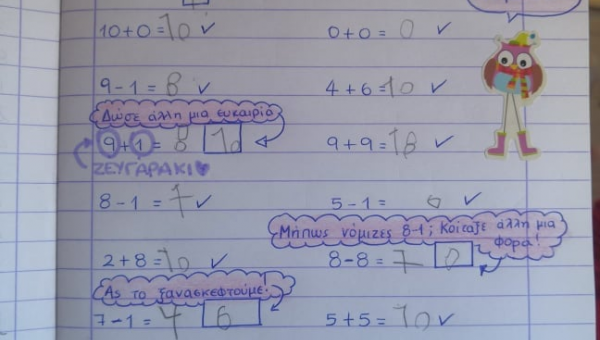 10+0=10 ✓ 0+0=0 ✓
9-1=8 ✓ 4+6=10 ✓
Δώσε άλλη μια ευκαιρία
9+1=8 10 9+9=18 ✓
ΖΕΥΓΑΡΑΚΙ♥
8-1=7 ✓ 5-1= ✓
Μήπως νόμιζες 8-1; Κοίταξε άλλη μια
φορά!
2+8=10 ✓ 8-8=7 0
Ας το ξανασκεφτούμε!
7-1=4 6 5+5=10 ✓